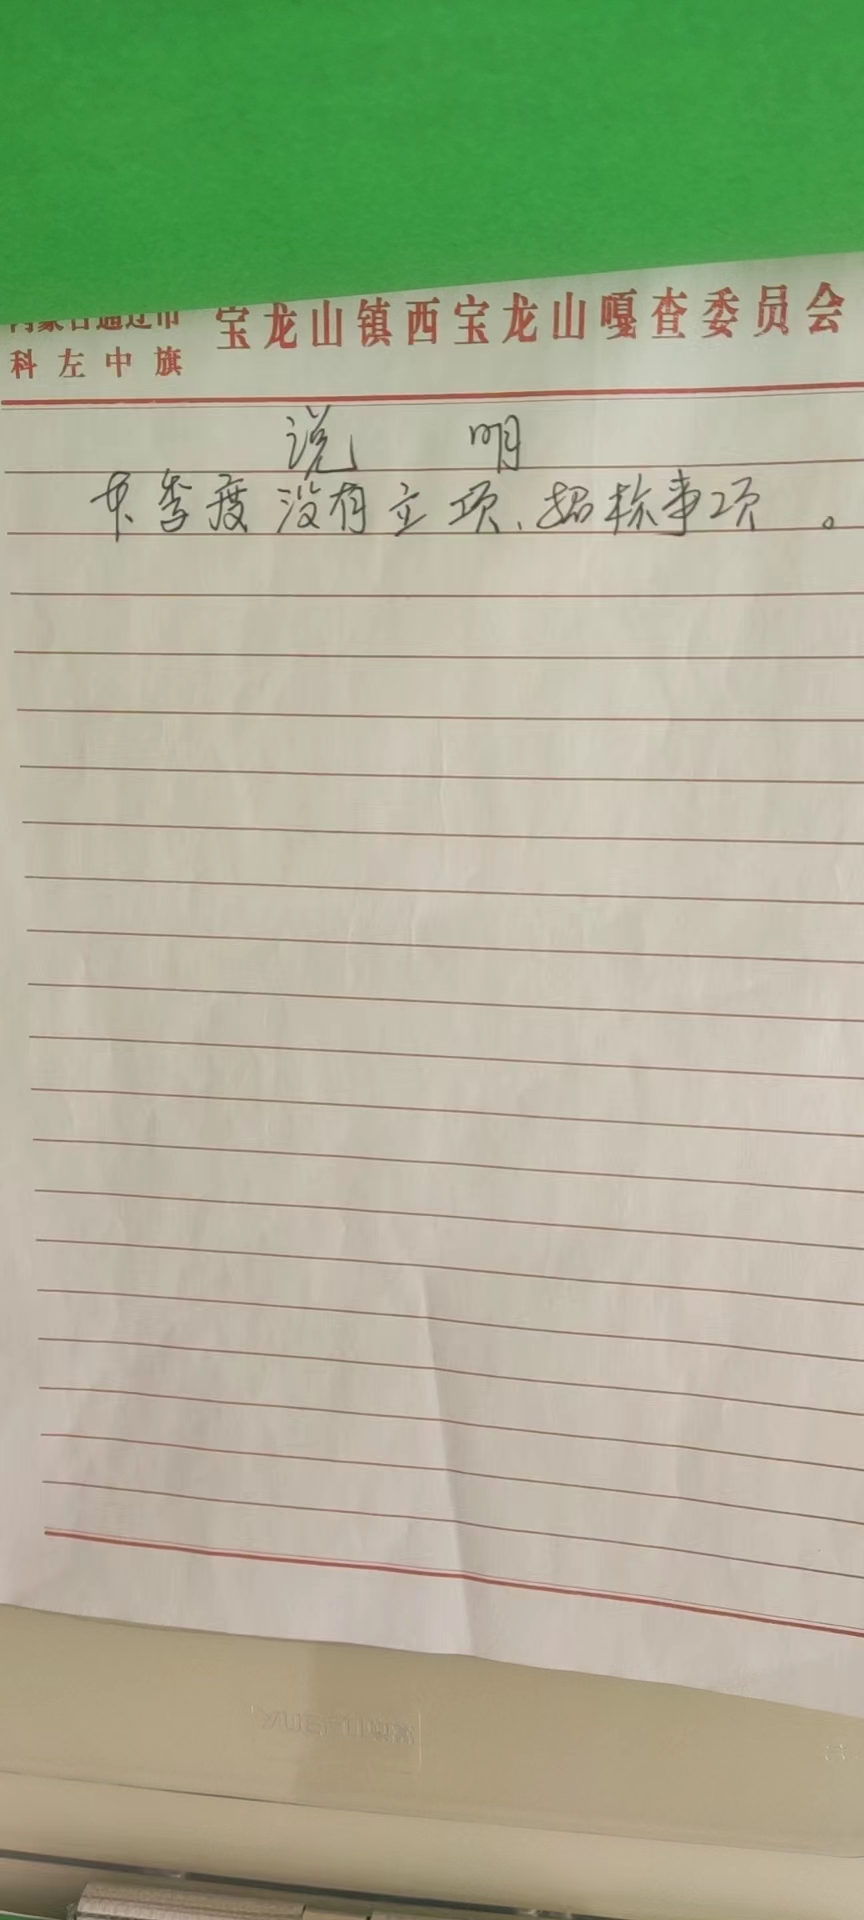 内蒙古通辽市
科左中旗
宝龙山镇西宝龙山嘎查委员会
说 明
本季度没有立项、招标事项。